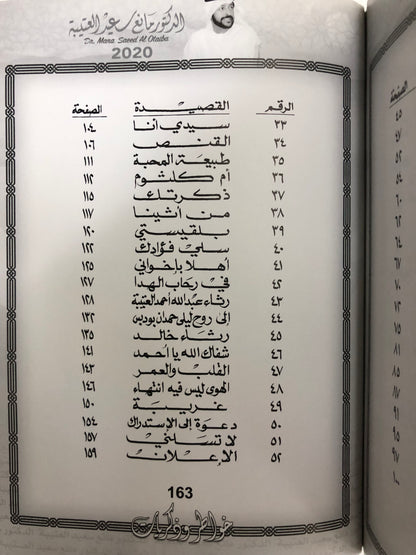 الدكتور مانع سعيد العتيبة
Dr. Mana Saeed Al Otaiba
2020
الرقم القصيدة الصفحة
٣٣ سيدي أنا ١٠٤
٣٤ القنص ١٠٦
٣٥ طبيعة المحبة ١١١
٣٦ أم كلثوم ١١٢
٣٧ ذكرتك ١١٥
٣٨ من أثينا ١١٧
٣٩ بلقيستي ١٢٠
٤٠ سلي فؤادك ١٢٢
٤١ أهلا بإخواني ١٢٥
٤٢ في رحاب الهدا ١٢٧
٤٣ رثاء عبدالله أحمد العتيبة ١٢٨
٤٤ إلى روح ليلى حمدان بودبس ١٣٢
٤٥ رثاء خالد ١٣٥
٤٦ شفاك الله يا أحمد ١٤١
٤٧ القلب والعمر ١٤٣
٤٨ الهوى ليس فيه انتهاء ١٤٦
٤٩ غريبة ١٥٠
٥٠ دعوة إلى الإستدراك ١٥٤
٥١ لا تسلني ١٥٧
٥٢ الإعلان ١٥٩
163
خواطر وذكريات
الصفحة
٤٥
٤٧
٥٢